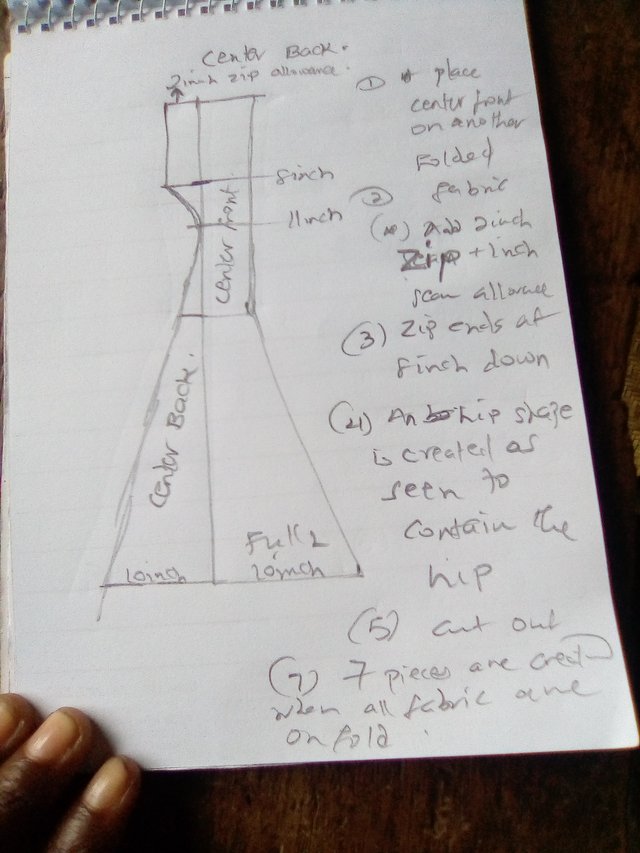 Center Back.
2inch zip allowance.
8inch
11inch
Center front
Center Back.
10inch
Full
10inch
(1) place
center front
on another
Folded
fabric
(2)
Add 2inch
Zip + 1inch
seam allowance
(3) Zip ends at
8inch down
(4) An hip shape
is created as
seen to
contain the
hip
(5) cut out
(7) 7 pieces are
when all fabric are
on fold.